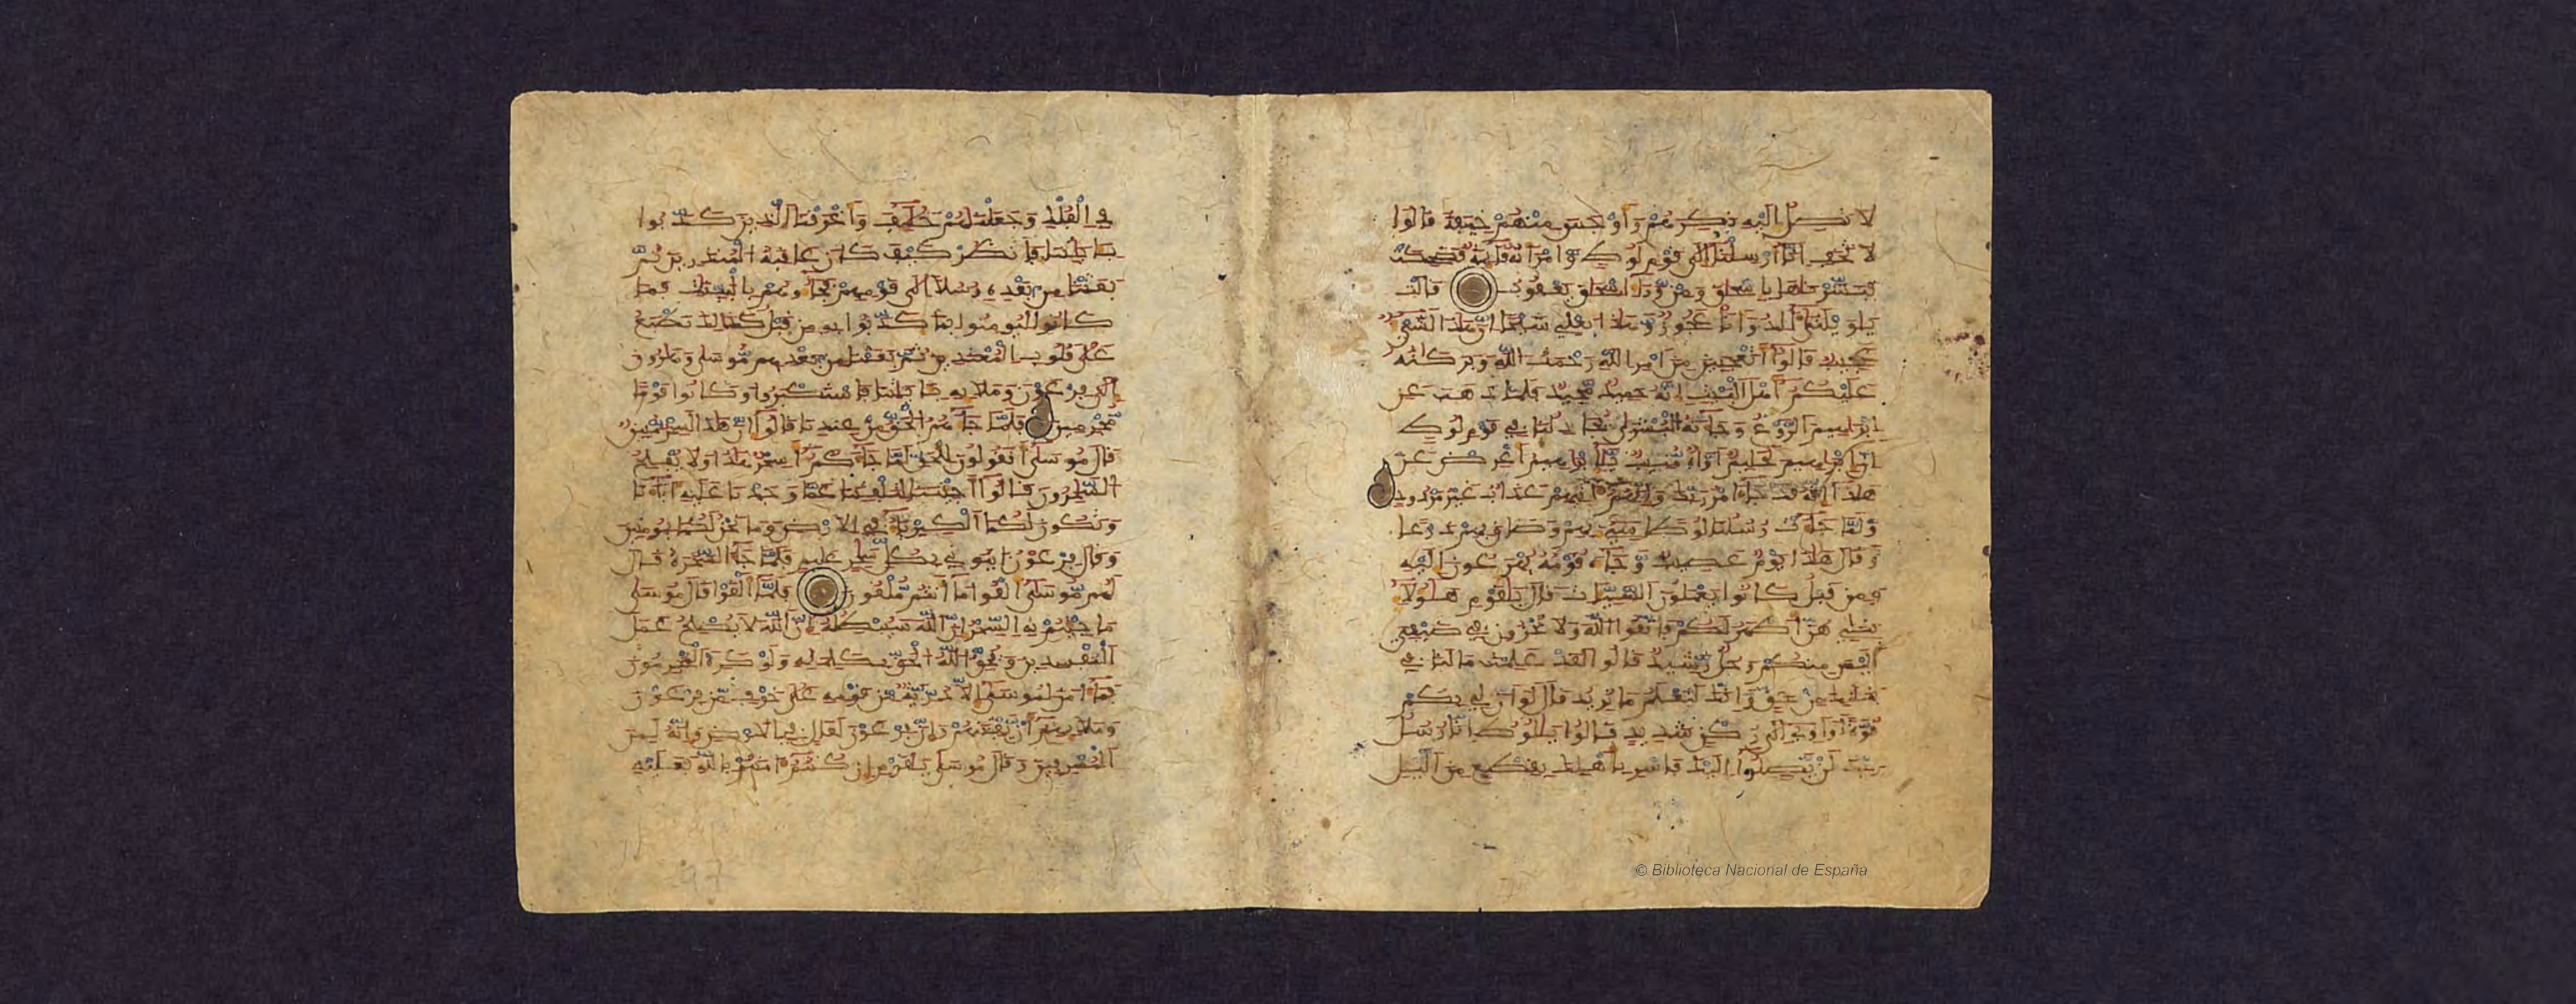 لَا تَصِلُ إِلَيْهِ نَكِرَهُمْ وَأَوْجَسَ مِنْهُمْ خِيفَةً قَالُوا
لَا تَخَفْ إِنَّا أُرْسِلْنَا إِلَى قَوْمِ لُوطٍ وَامْرَأَتُهُ قَائِمَةٌ فَضَحِكَتْ
فَبَشَّرْنَاهَا بِإِسْحَاقَ وَمِنْ وَرَاءِ إِسْحَاقَ يَعْقُوبُ قَالَتْ
يَاوَيْلَتَى ءَأَلِدُ وَأَنَا عَجُوزٌ وَهَٰذَا بَعْلِي شَيْخًا إِنَّ هَٰذَا لَشَيْءٌ
عَجِيبٌ قَالُوا أَتَعْجَبِينَ مِنْ أَمْرِ اللَّهِ رَحْمَتُ اللَّهِ وَبَرَكَاتُهُ
عَلَيْكُمْ أَهْلَ الْبَيْتِ إِنَّهُ حَمِيدٌ مَّجِيدٌ فَلَمَّا ذَهَبَ عَنْ
إِبْرَاهِيمَ الرَّوْعُ وَجَاءَتْهُ الْبُشْرَى يُجَادِلُنَا فِي قَوْمِ لُوطٍ
إِنَّ إِبْرَاهِيمَ لَحَلِيمٌ أَوَّاهٌ مُّنِيبٌ يَٰإِبْرَاهِيمُ أَعْرِضْ عَنْ
هَٰذَا إِنَّهُ قَدْ جَاءَ أَمْرُ رَبِّكَ وَإِنَّهُمْ ءَاتِيهِمْ عَذَابٌ غَيْرُ مَرْدُودٍ
وَلَمَّا جَاءَتْ رُسُلُنَا لُوطًا سِيءَ بِهِمْ وَضَاقَ بِهِمْ ذَرْعًا
وَقَالَ هَٰذَا يَوْمٌ عَصِيبٌ وَجَاءَهُ قَوْمُهُ يُهْرَعُونَ إِلَيْهِ
وَمِن قَبْلُ كَانُوا يَعْمَلُونَ السَّيِّئَاتِ قَالَ يَٰقَوْمِ هَٰؤُلَاءِ
بَنَاتِي هُنَّ أَطْهَرُ لَكُمْ فَاتَّقُوا اللَّهَ وَلَا تُخْزُونِ فِي ضَيْفِي
أَلَيْسَ مِنكُمْ رَجُلٌ رَّشِيدٌ قَالُوا لَقَدْ عَلِمْتَ مَا لَنَا فِي
بَنَاتِكَ مِنْ حَقٍّ وَإِنَّكَ لَتَعْلَمُ مَا نُرِيدُ قَالَ لَوْ أَنَّ لِي بِكُمْ
قُوَّةً أَوْ ءَاوِي إِلَى رُكْنٍ شَدِيدٍ قَالُوا يَٰلُوطُ إِنَّا رُسُلُ
رَبِّكَ لَن يَّصِلُوا إِلَيْكَ فَاسْرِ بِأَهْلِكَ بِقِطْعٍ مِّنَ الَّيْلِ
فِي الْفُلْكِ وَجَعَلْنَٰهُمْ خَلَٰئِفَ وَأَغْرَقْنَا الَّذِينَ كَذَّبُوا
بِـَٔايَٰتِنَا فَانظُرْ كَيْفَ كَانَ عَٰقِبَةُ الْمُنذَرِينَ ثُمَّ
بَعَثْنَا مِن بَعْدِهِ رُسُلًا إِلَى قَوْمِهِمْ فَجَاءُوهُم بِالْبَيِّنَٰتِ فَمَا
كَانُوا لِيُومِنُوا بِمَا كَذَّبُوا بِهِ مِن قَبْلُ كَذَٰلِكَ نَطْبَعُ
عَلَى قُلُوبِ الْمُعْتَدِينَ ثُمَّ بَعَثْنَا مِن بَعْدِهِم مُّوسَى وَهَٰرُونَ
إِلَى فِرْعَوْنَ وَمَلَإِيهِ بِـَٔايَٰتِنَا فَاسْتَكْبَرُوا وَكَانُوا قَوْمًا
مُّجْرِمِينَ فَلَمَّا جَاءَهُمُ الْحَقُّ مِنْ عِندِنَا قَالُوا إِنَّ هَٰذَا لَسِحْرٌ مُّبِينٌ
قَالَ مُوسَى أَتَقُولُونَ لِلْحَقِّ لَمَّا جَاءَكُمْ أَسِحْرٌ هَٰذَا وَلَا يُفْلِحُ
السَّٰحِرُونَ قَالُوا أَجِئْتَنَا لِتَلْفِتَنَا عَمَّا وَجَدْنَا عَلَيْهِ ءَابَاءَنَا
وَتَكُونَ لَكُمَا الْكِبْرِيَاءُ فِي الْأَرْضِ وَمَا نَحْنُ لَكُمَا بِمُومِنِينَ
وَقَالَ فِرْعَوْنُ ايتُونِي بِكُلِّ سَٰحِرٍ عَلِيمٍ فَلَمَّا جَاءَ السَّحَرَةُ قَالَ
لَهُم مُّوسَى أَلْقُوا مَا أَنتُم مُّلْقُونَ فَلَمَّا أَلْقَوْا قَالَ مُوسَى
مَا جِئْتُم بِهِ السِّحْرُ إِنَّ اللَّهَ سَيُبْطِلُهُ إِنَّ اللَّهَ لَا يُصْلِحُ عَمَلَ
الْمُفْسِدِينَ وَيُحِقُّ اللَّهُ الْحَقَّ بِكَلِمَٰتِهِ وَلَوْ كَرِهَ الْمُجْرِمُونَ
فَمَا ءَامَنَ لِمُوسَى إِلَّا ذُرِّيَّةٌ مِّن قَوْمِهِ عَلَى خَوْفٍ مِّن فِرْعَوْنَ
وَمَلَإِيهِمْ أَن يَّفْتِنَهُمْ وَإِنَّ فِرْعَوْنَ لَعَالٍ فِي الْأَرْضِ وَإِنَّهُ لَمِنَ
الْمُسْرِفِينَ وَقَالَ مُوسَى يَٰقَوْمِ إِن كُنتُمْ ءَامَنتُم بِاللَّهِ فَعَلَيْهِ
© Biblioteca Nacional de España